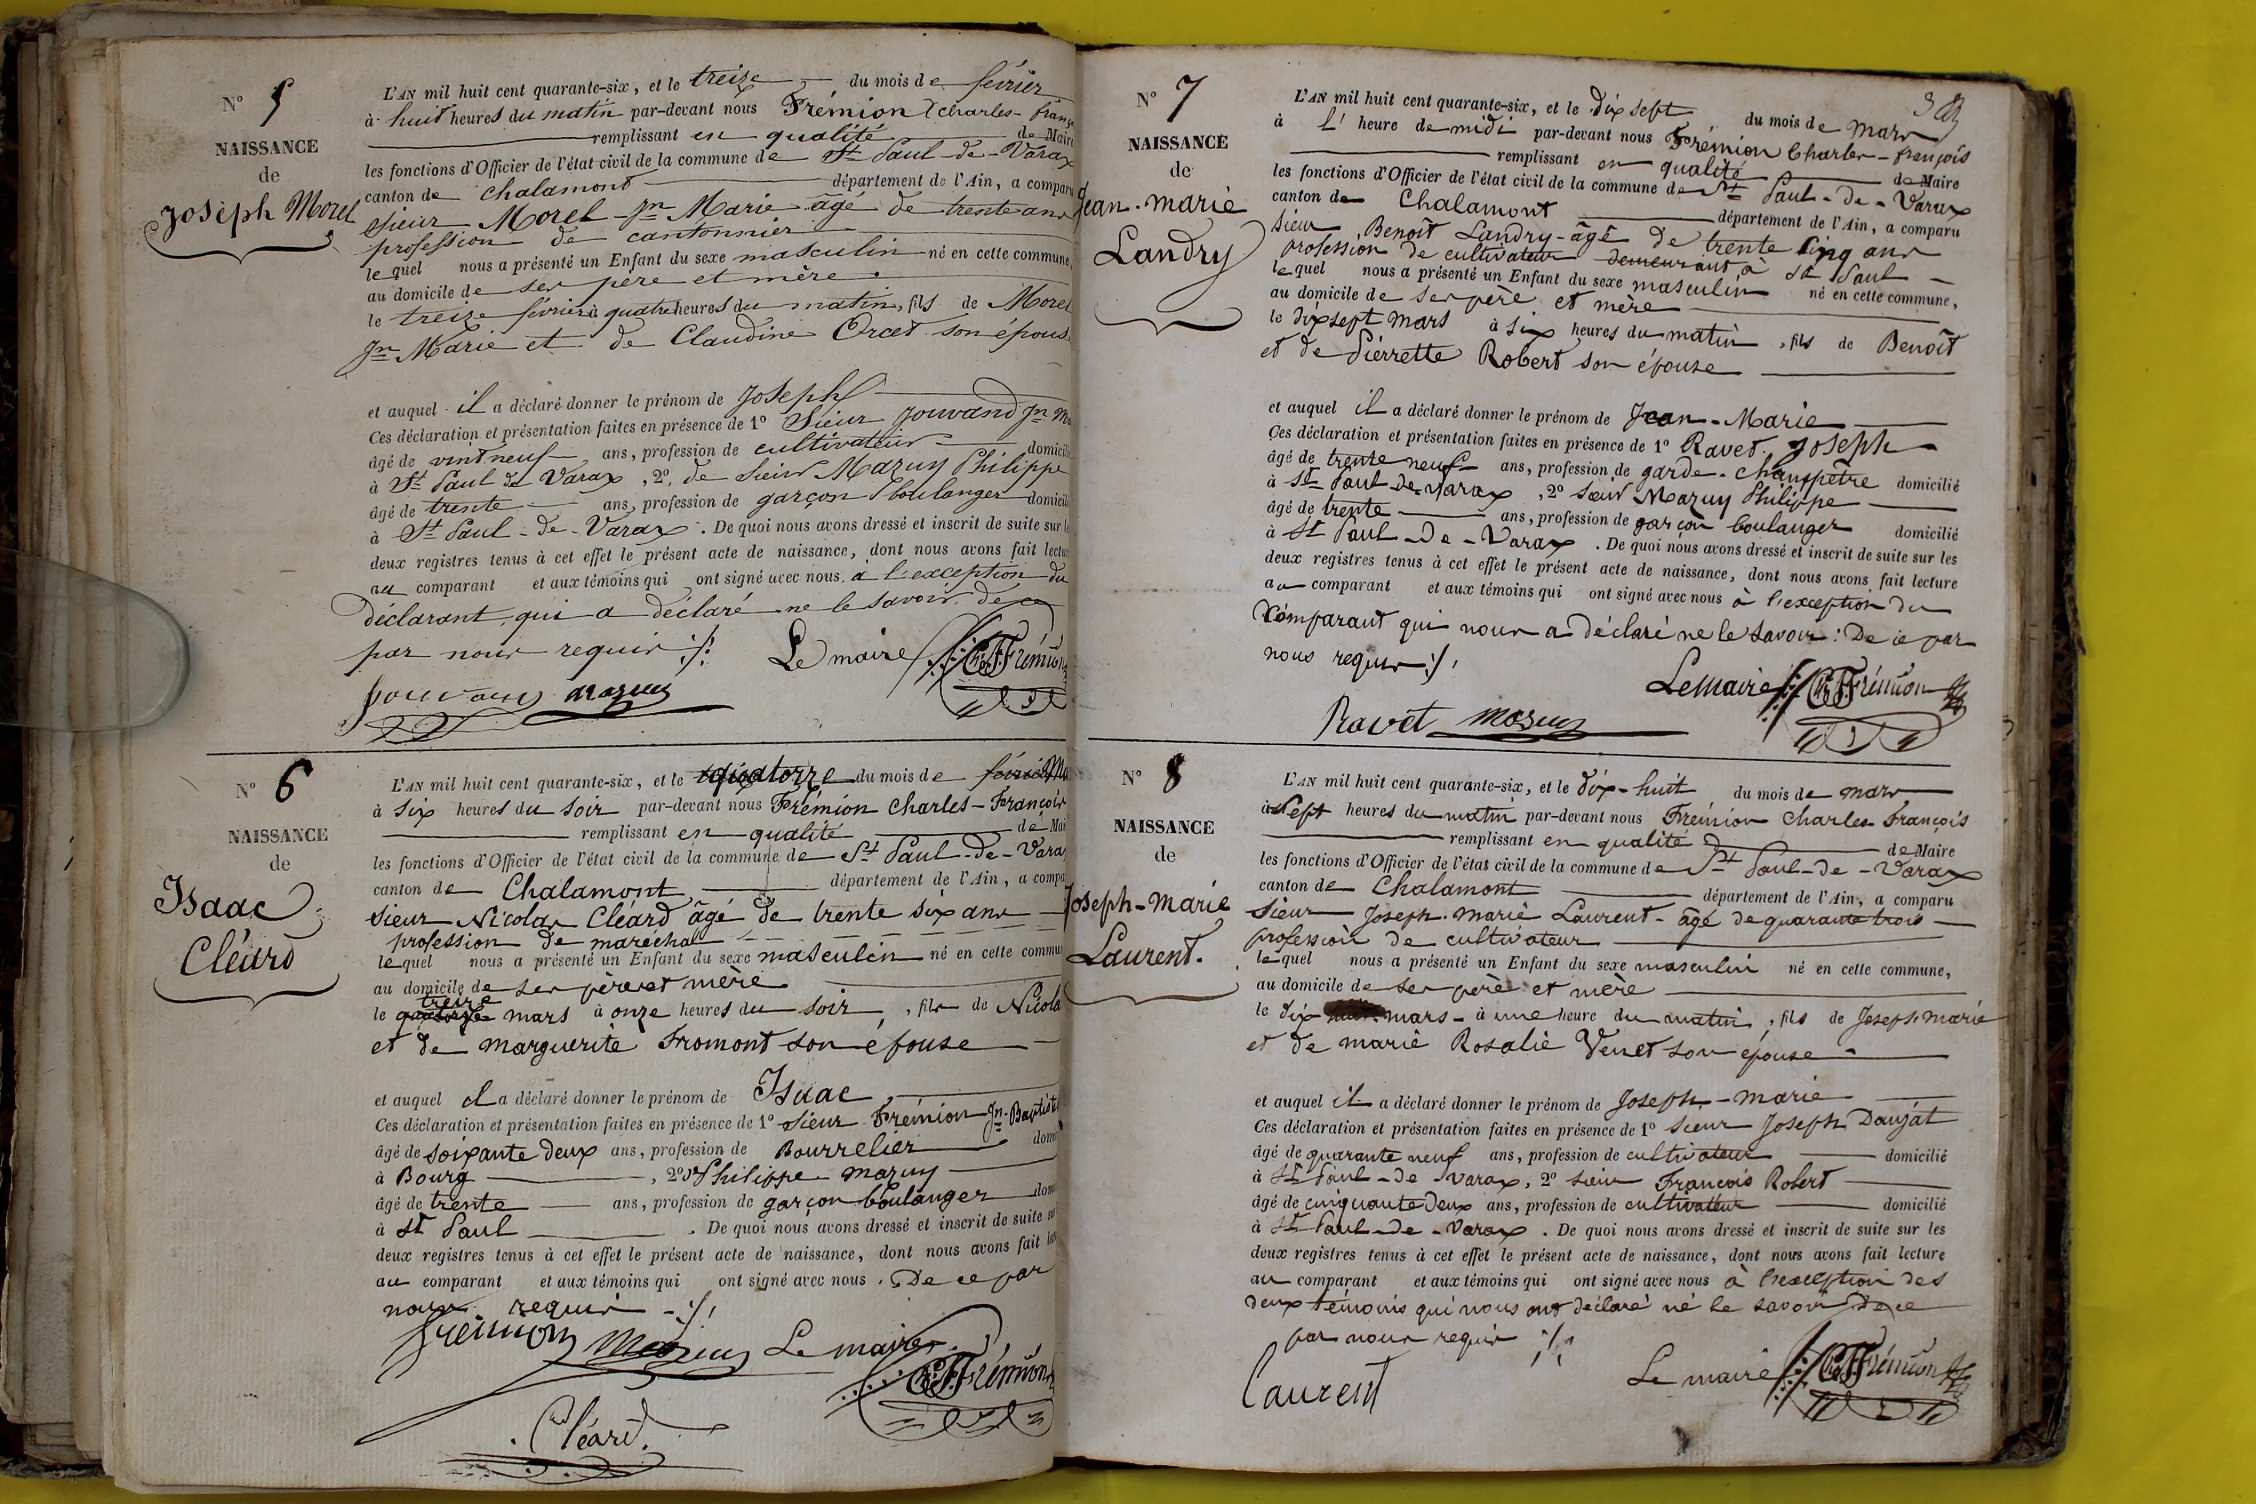 N° 5
NAISSANCE
de
Joseph Morel
L'AN mil huit cent quarante-six, et le treize du mois de février
à huit heures du matin par-devant nous Frémion Charles-franç
remplissant en qualité de Maire
les fonctions d'Officier de l'état civil de la commune de St Paul-de-Varax
canton de Chalamont département de l'Ain, a comparu
sieur Morel Jn Marie âgé de trente ans
profession de cantonnier
lequel nous a présenté un Enfant du sexe masculin né en cette commune,
au domicile de ses père et mère
le treize février à quatre heures du matin, fils de Morel
Jn Marie et de Claudine Orcet son épous
et auquel il a déclaré donner le prénom de Joseph
Ces déclaration et présentation faites en présence de 1° Sieur Jouvand Jn Ma
âgé de vint neuf ans, profession de cultivateur domicili
à St Paul de Varax, 2° de sieur Mazuy Philippe
âgé de trente ans, profession de garçon boulanger domicili
à St Paul-de-Varax. De quoi nous avons dressé et inscrit de suite sur l
deux registres tenus à cet effet le présent acte de naissance, dont nous avons fait lectur
au comparant et aux témoins qui ont signé avec nous, à l'exception du
déclarant, qui a déclaré ne le savoir de ce
par nous requis ./.
Le maire Ch Frémion
Jouvand Mazuy
N° 6
NAISSANCE
de
Isaac
Cléard
L'AN mil huit cent quarante-six, et le quatorze du mois de février Ma
à six heures du soir par-devant nous Frémion Charles-François
remplissant en qualité de Mai
les fonctions d'Officier de l'état civil de la commune de St Paul-de-Vara
canton de Chalamont département de l'Ain, a compa
sieur Nicolas Cléard âgé de trente six ans
profession de maréchal
lequel nous a présenté un Enfant du sexe masculin né en cette commu
au domicile de ses père et mère
treize
le quatorze mars à onze heures du soir, fils de Nicola
et de marguerite Fromont son épouse
et auquel il a déclaré donner le prénom de Isaac
Ces déclaration et présentation faites en présence de 1° sieur Frémion Jn-Baptiste
âgé de soixante deux ans, profession de Bourrelier domi
à Bourg, 2° Philippe mazuy
âgé de trente ans, profession de garçon boulanger dom
à St Paul. De quoi nous avons dressé et inscrit de suite su
deux registres tenus à cet effet le présent acte de naissance, dont nous avons fait lec
au comparant et aux témoins qui ont signé avec nous. De ce par
nous requis ./.
frémion Mazuy Le maire
Ch Frémion
Cléard.
N° 7
NAISSANCE
de
Jean-marie
Landry
3
L'AN mil huit cent quarante-six, et le dix sept du mois de mars
à l' heure de midi par-devant nous Frémion Charles-françois
remplissant en qualité de Maire
les fonctions d'Officier de l'état civil de la commune de St Paul-de-Varax
canton de Chalamont département de l'Ain, a comparu
sieur Benoît Landry âgé de trente cinq ans
profession de cultivateur demeurant à St Paul
lequel nous a présenté un Enfant du sexe masculin né en cette commune,
au domicile de ses père et mère
le dix sept mars à six heures du matin, fils de Benoît
et de Pierrette Robert son épouse
et auquel il a déclaré donner le prénom de Jean-Marie
Ces déclaration et présentation faites en présence de 1° Ravet Joseph
âgé de trente neuf ans, profession de garde-champêtre domicilié
à St Paul-de-Varax, 2° sieur Mazuy Philippe
âgé de trente ans, profession de garçon boulanger domicilié
à St Paul-de-Varax. De quoi nous avons dressé et inscrit de suite sur les
deux registres tenus à cet effet le présent acte de naissance, dont nous avons fait lecture
au comparant et aux témoins qui ont signé avec nous à l'exception du
comparant qui nous a déclaré ne le savoir: De ce par
nous requis ./.
Le maire Ch Frémion
Ravet Mazuy
N° 8
NAISSANCE
de
Joseph-Marie
Laurent.
L'AN mil huit cent quarante-six, et le dix-huit du mois de mars
à sept heures du matin par-devant nous Frémion Charles François
remplissant en qualité de Maire
les fonctions d'Officier de l'état civil de la commune de St Paul-de-Varax
canton de Chalamont département de l'Ain, a comparu
sieur Joseph-marie Laurent-âgé de quarante trois
profession de cultivateur
lequel nous a présenté un Enfant du sexe masculin né en cette commune,
au domicile de ses père et mère
le dix mars à une heure du matin, fils de Joseph-marie
et de marie Rosalie Venet son épouse
et auquel il a déclaré donner le prénom de Joseph-marie
Ces déclaration et présentation faites en présence de 1° sieur Joseph Daujat
âgé de quarante neuf ans, profession de cultivateur domicilié
à St Paul-de-Varax, 2° sieur François Robert
âgé de cinquante deux ans, profession de cultivateur domicilié
à St Paul-de-Varax. De quoi nous avons dressé et inscrit de suite sur les
deux registres tenus à cet effet le présent acte de naissance, dont nous avons fait lecture
au comparant et aux témoins qui ont signé avec nous à l'exception des
deux témoins qui nous ont déclaré ne le savoir De ce
par nous requis ./.
Laurent Le maire Ch Frémion